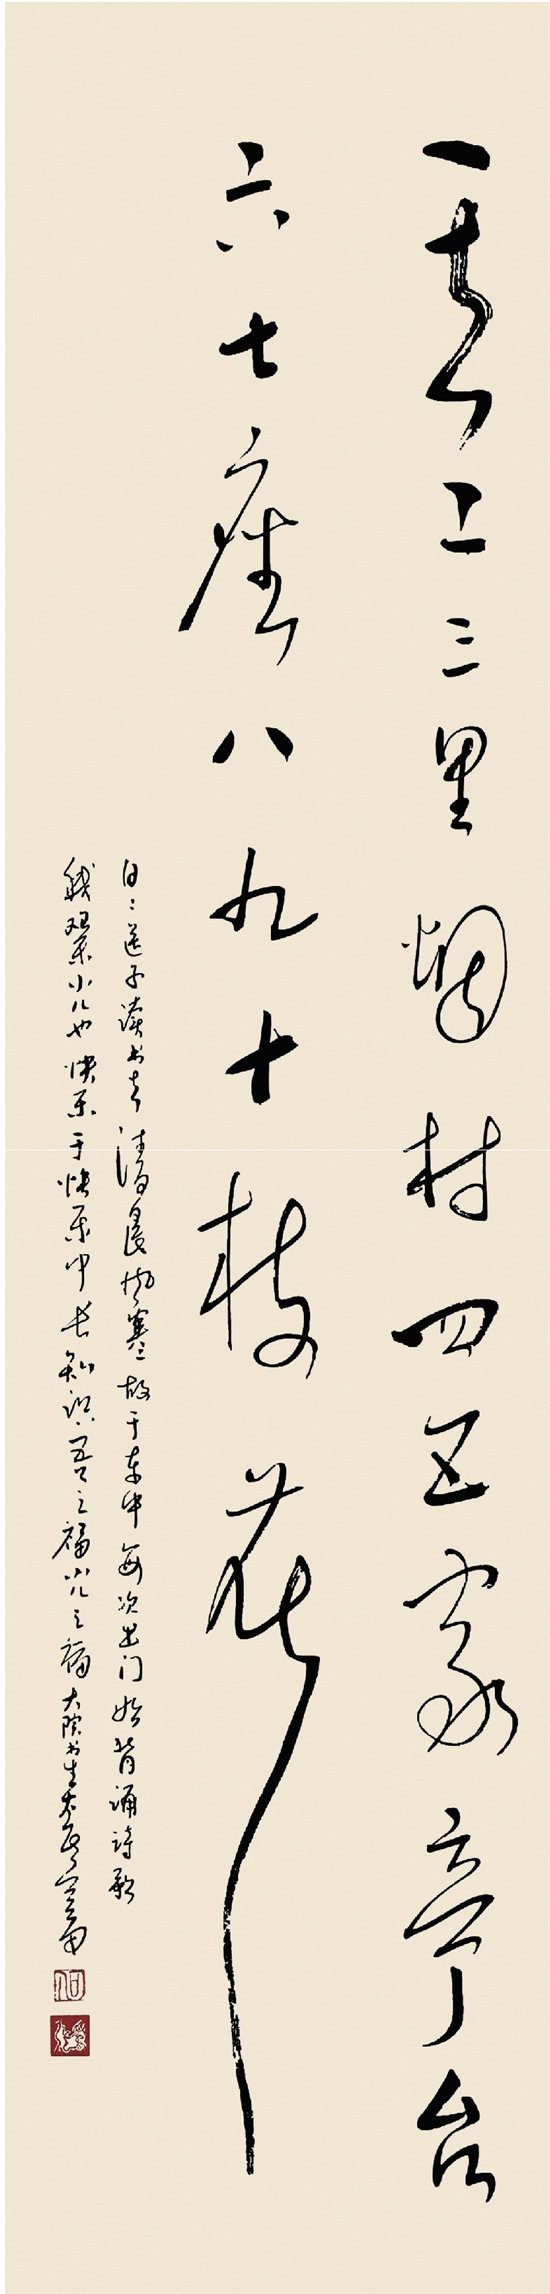 一去二三里烟村四五家亭台
六七座八九十枝花
日日送子读书去清晨风寒故于车中每次出门始背诵诗歌
小儿也快乐于快乐中长知识吾之福小儿之福大院书生